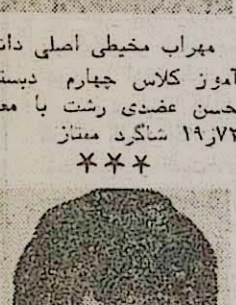 مهراب محیطی اصلی دانـ
آموز کلاس چهارم دبستـ
حسن عضدی رشت با معـ
۱۹٫۷۲ شاگرد ممتاز
***